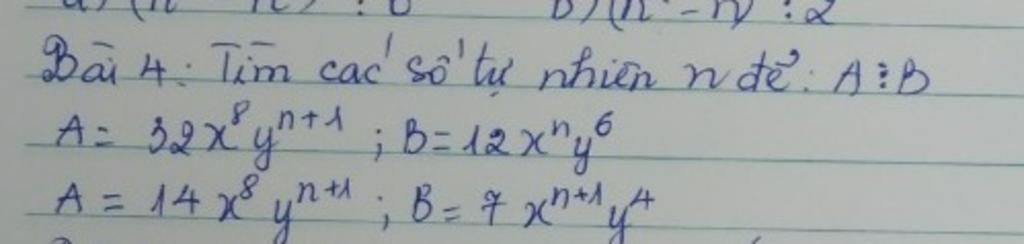 b) (n - n) ⋮ 2
Bài 4: Tìm các số tự nhiên n để: A ⋮ B
A = 32x⁸yⁿ⁺¹ ; B = 12xⁿy⁶
A = 14x⁸yⁿ⁺¹ ; B = 7xⁿ⁺¹y⁴